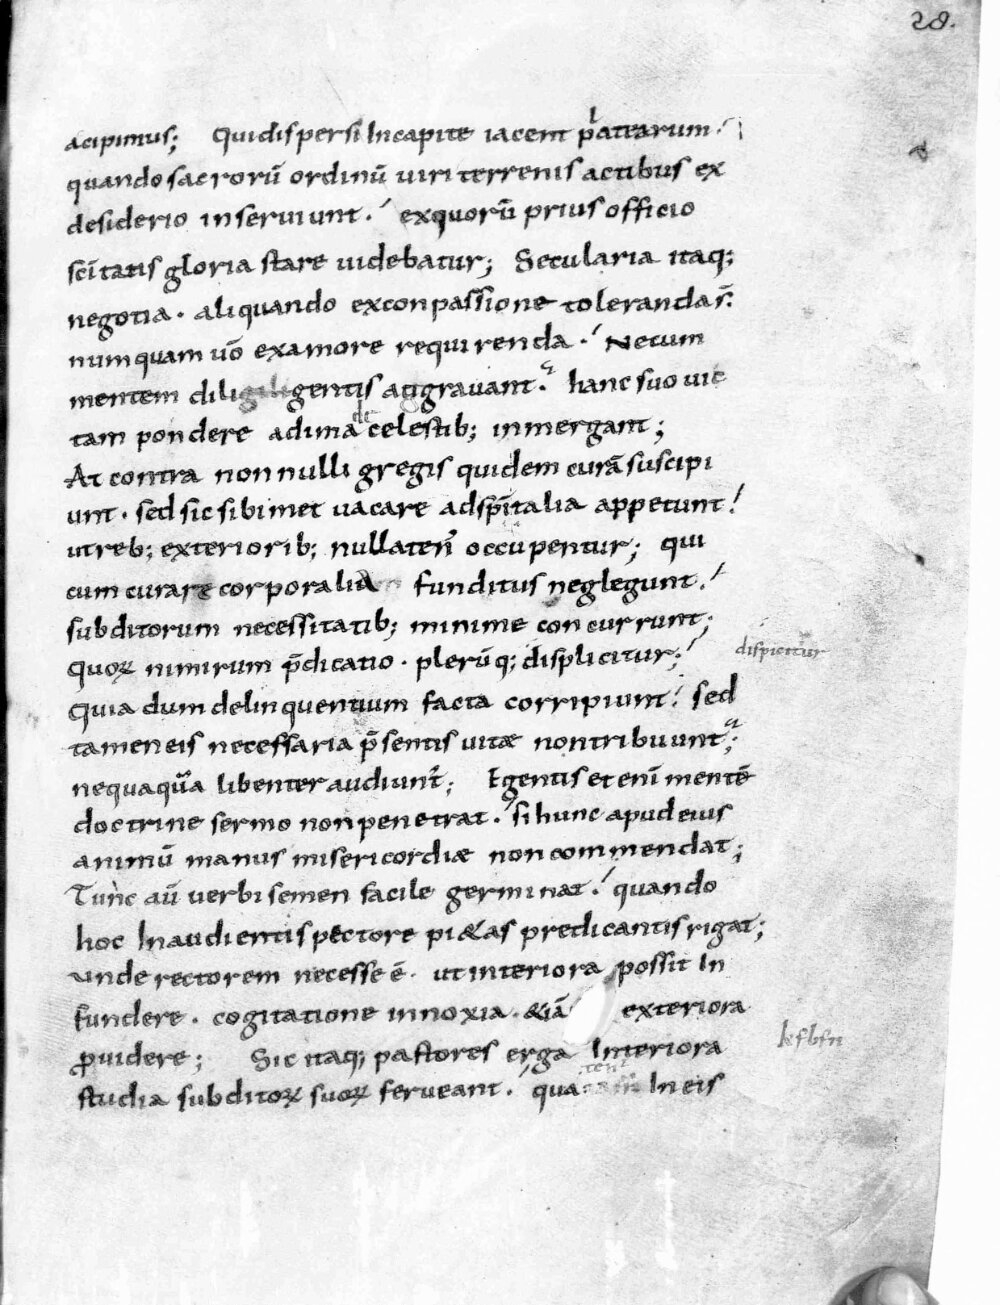 28.
acipimus; Quidispersi Incapite iacent platearum;
quando sacrorū ordinū uiri terrenis actibus ex
desiderio inseruiunt. exquorū prius officio
sc̄itatis gloria stare uidebatur; Secularia itaq;
negotia. aliquando exconpassione toleranda s̄.
numquam uō examore requirenda. Necum
mentem diligentis aggrauant. hanc suo uic
tam pondere adima de celestib; inmergant;
At contra nonnulli gregis quidem curā suscipi
unt. sed sic sibimet uacare adspīritalia appetunt!
utreb; exteriorib; nullaten̄ occupentur; qui
cum curare corporalia funditus neglegunt.
subditorum necessitatib; minime concurrunt;
quoꝝ nimirum p̄dicatio. plerūq; displicitur; dispicitur
Quia dum delinquentium facta corripiunt! sed
tamen eis necessaria p̄sentis uitae non tribuunt;
nequaquā libenter audiunt̄; Egentis etenī mentē
doctrine sermo non penetrat. si hunc apud eius
animū manus misericordiae non commendat;
Tunc aū uerbi semen facile germinat. quando
hoc Inaudientis pectore pi&as predicantis rigat;
unde rectorem necesse ē. ut interiora possit In
fundere. cogitatione innoxia. &iā exteriora
ꝓuidere; Sic itaq; pastores erga Interiora
studia subditoꝝ suoꝝ ferueant. qua ten̄ In eis